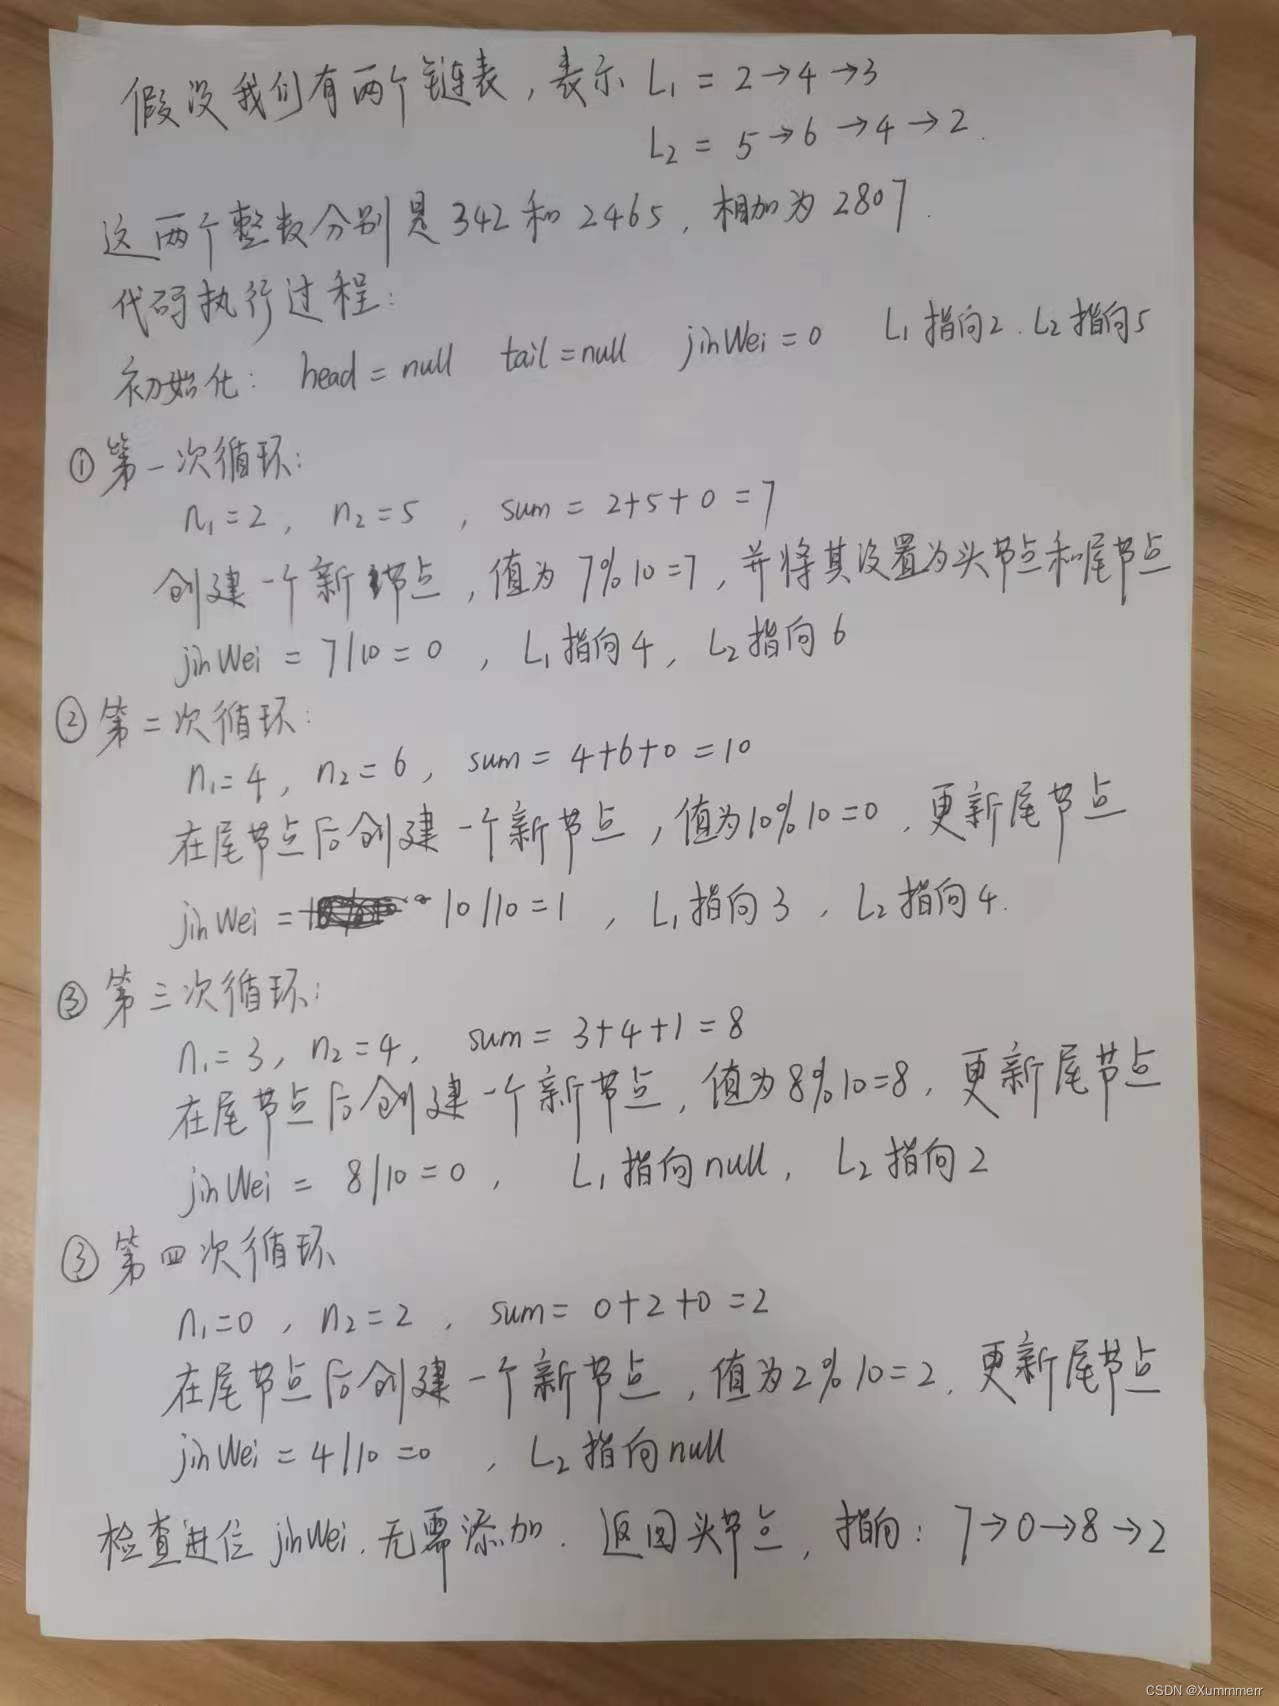 假设我们有两个链表，表示 L₁ = 2→4→3
L₂ = 5→6→4→2.
这两个整数分别是342和2465，相加为2807.
代码执行过程：
初始化： head = null tail = null jinWei = 0 L₁指向2. L₂指向5
① 第一次循环：
n₁=2, n₂=5, sum = 2+5+0=7
创建一个新节点，值为 7%10=7，并将其设置为头节点和尾节点
jinWei = 7/10 = 0 , L₁指向4, L₂指向6
② 第二次循环：
n₁=4, n₂=6, sum = 4+6+0=10
在尾节点后创建一个新节点，值为10%10=0，更新尾节点
jinWei = 10/10=1 , L₁指向3 , L₂指向4.
③ 第三次循环：
n₁=3, n₂=4, sum = 3+4+1=8
在尾节点后创建一个新节点，值为8%10=8，更新尾节点
jinWei = 8/10=0, L₁指向null, L₂指向2
③ 第四次循环
n₁=0 , n₂=2 , sum= 0+2+0=2
在尾节点后创建一个新节点，值为2%10=2，更新尾节点
jinWei = 4/10=0 , L₂指向null
检查进位jinWei，无需添加. 返回头节点，指向：7→0→8→2
CSDN @Xummmerr